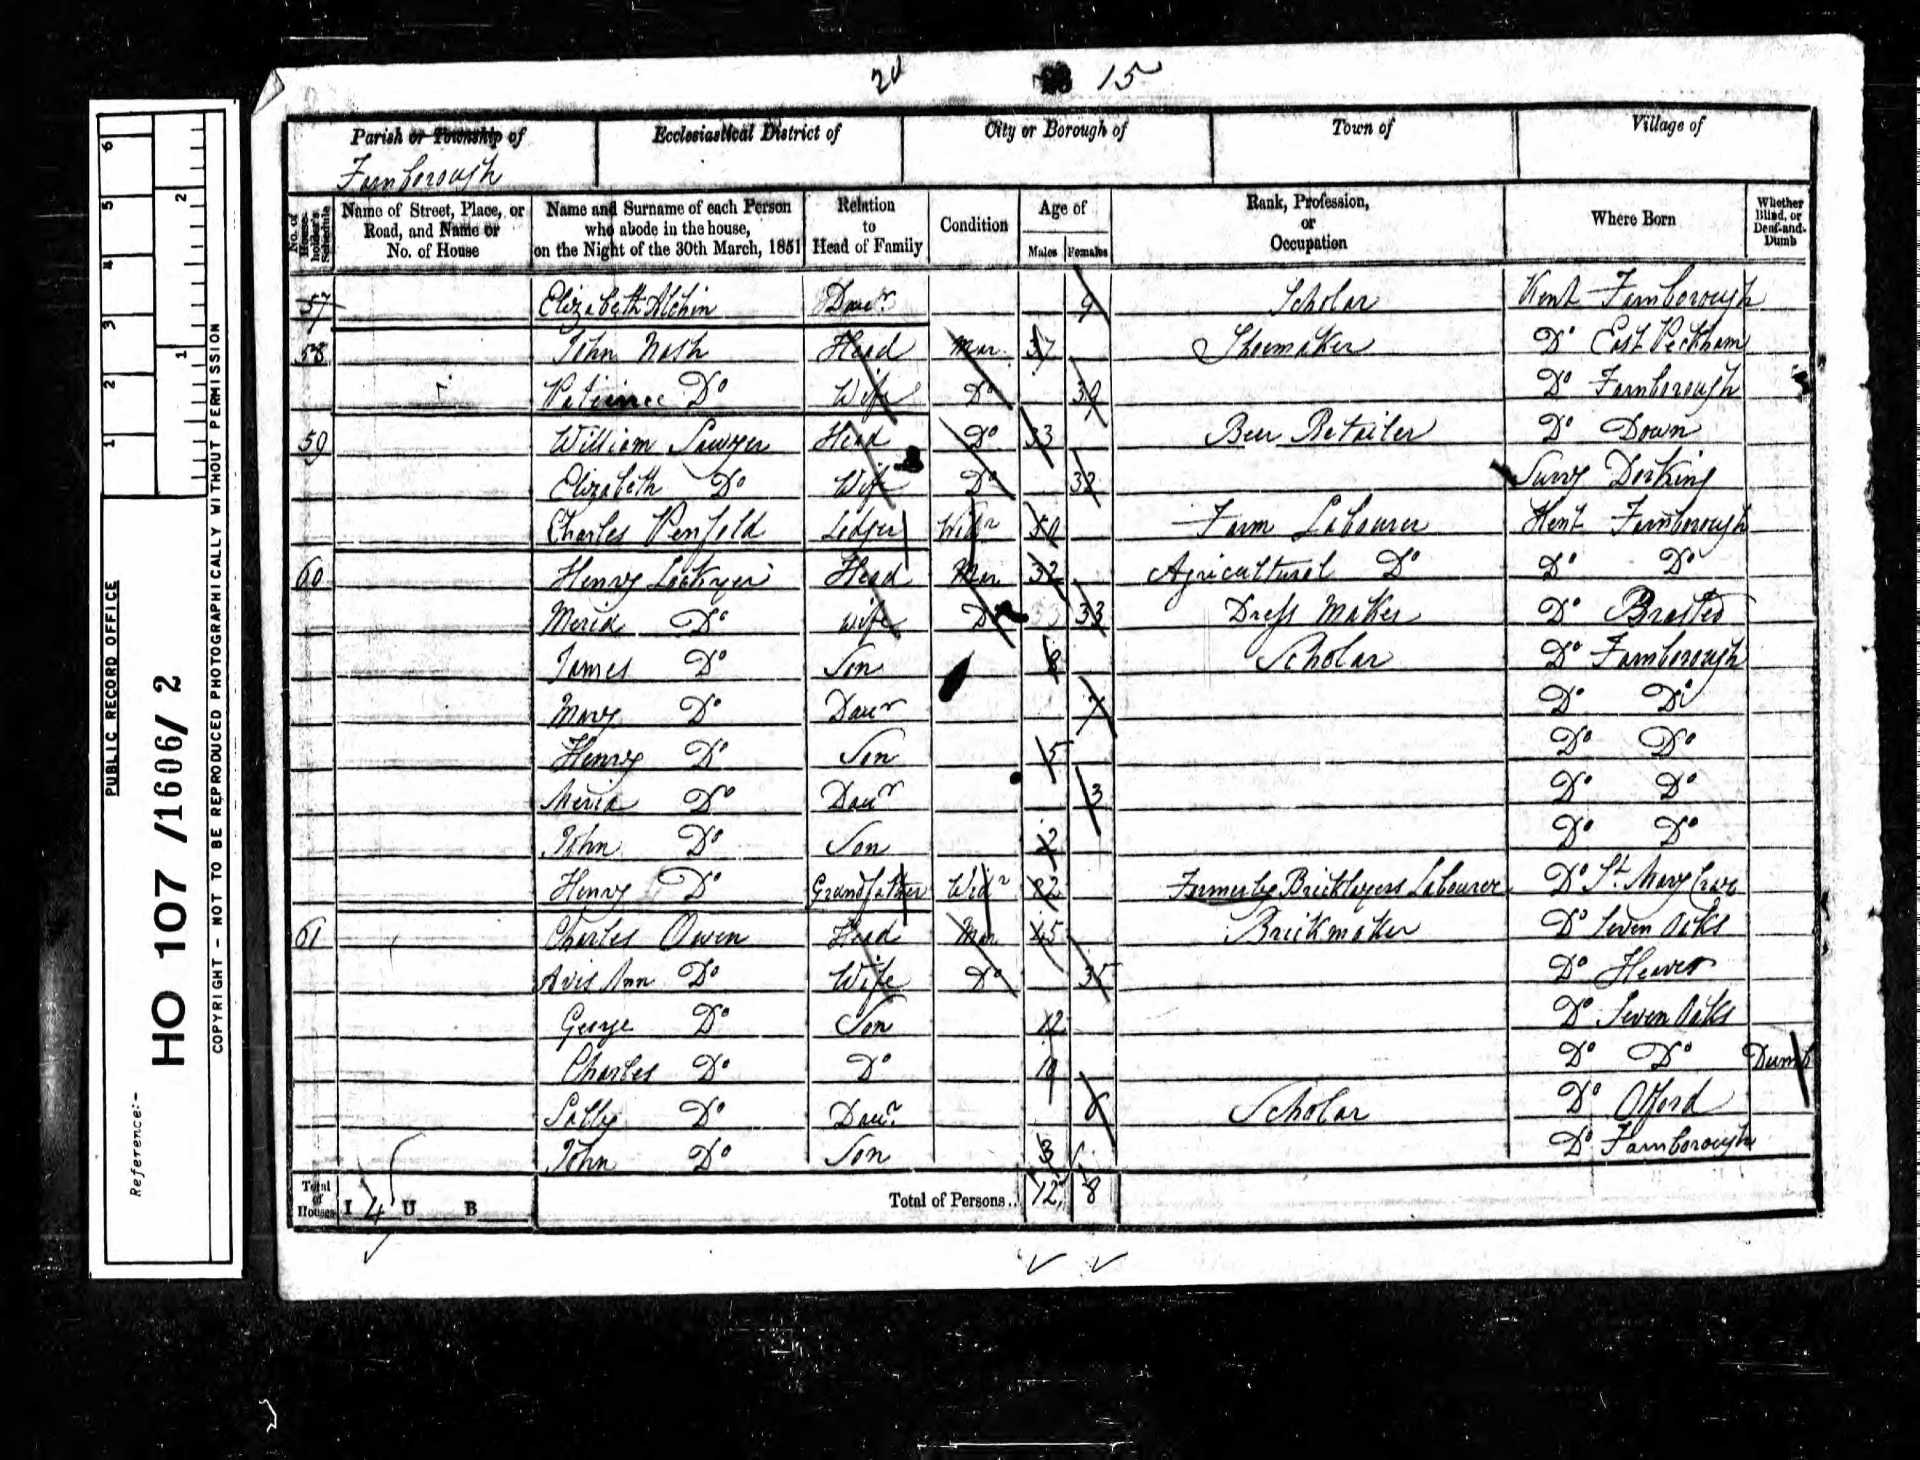 20 15
Parish or Township of Ecclesiastical District of City or Borough of Town of Village of
Farnborough
No. of House-holder's Schedule Name of Street, Place, or Road, and Name or No. of House Name and Surname of each Person who abode in the house, on the Night of the 30th March, 1851 Relation to Head of Family Condition Age of Males Females Rank, Profession, or Occupation Where Born Whether Blind, or Deaf-and-Dumb
57 Elizabeth Alchin Daur 9 Scholar Kent Farnborough
58 John Nash Head Mar. 37 Shoemaker Do East Peckham
Patience Do Wife Do 39 Do Farnborough
59 William Sawyer Head Do 33 Beer Retailer Do Down
Elizabeth Do Wife Do 32 Surry Dorking
Charles Penfold Lodger Widr 50 Farm Labourer Kent Farnborough
60 Henry Lockyer Head Mar 32 Agricultural Do Do Do
Meria Do Wife Do 33 Dress Maker Do Brasted
James Do Son 8 Scholar Do Farnborough
Mary Do Daur 7 Do Do
Henry Do Son 5 Do Do
Meria Do Daur 3 Do Do
John Do Son 2 Do Do
Henry Do Grandfather Widr 82 Formerly Bricklayers Labourer Do St. Mary Cray
61 Charles Owen Head Mar 45 Brickmaker Do Seven Oaks
Avis Ann Do Wife Do 35 Do Hever
George Do Son 12 Do Seven Oaks
Charles Do Do 10 Do Do Dumb
Sally Do Daur. 6 Scholar Do Otford
John Do Son 3 Do Farnborough
Total of Houses I 4 U B Total of Persons.. 12 8
PUBLIC RECORD OFFICE
Reference:-
HO 107 /1606/ 2
COPYRIGHT - NOT TO BE REPRODUCED PHOTOGRAPHICALLY WITHOUT PERMISSION
1 2 3 4 5 6
1 2